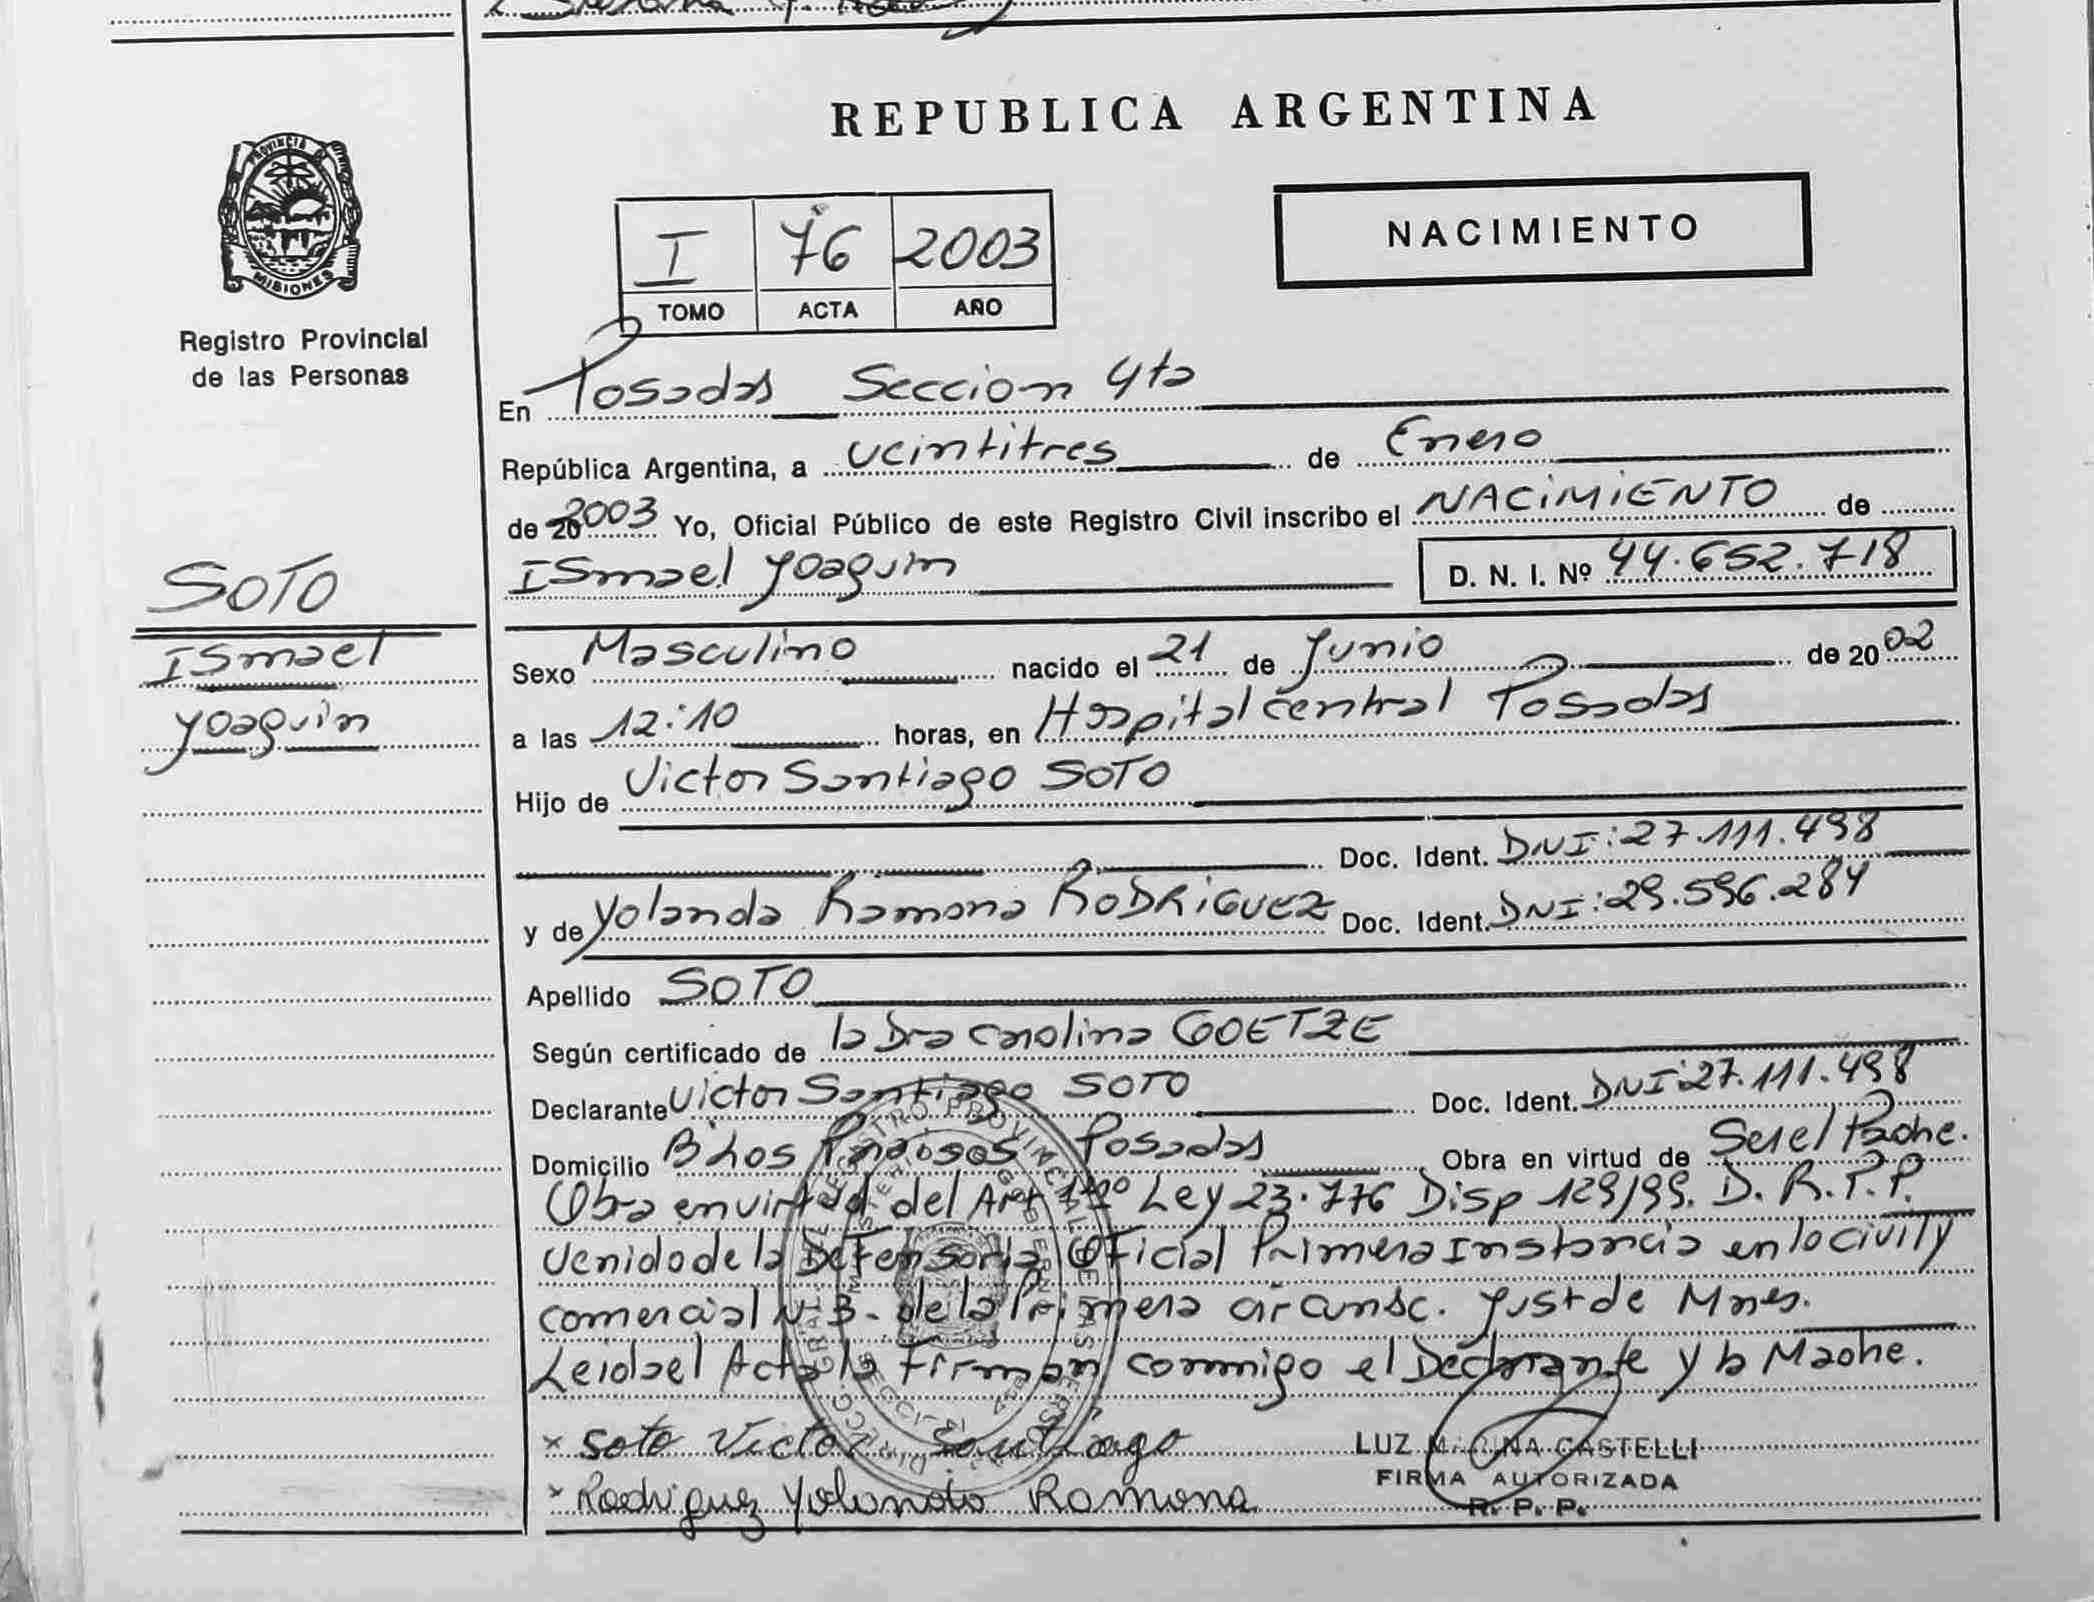 REPUBLICA ARGENTINA
PROVINCIA DE
MISIONES
Registro Provincial
de las Personas
NACIMIENTO
I 76 2003
TOMO ACTA AÑO
En Posadas Seccion 4ta
República Argentina, a veintitres de Enero
de 20 2003 Yo, Oficial Público de este Registro Civil inscribo el NACIMIENTO de
Ismael Joaquin D. N. I. Nº 44.652.718
SOTO
Ismael
Joaquin
Sexo Masculino nacido el 21 de Junio de 2002
a las 12:10 horas, en Hospital central Posadas
Hijo de Victor Santiago SOTO
Doc. Ident. DNI: 27.111.498
y de Yolanda Ramona RODRIGUEZ Doc. Ident. DNI: 29.596.284
Apellido SOTO
Según certificado de la Dra Carolina GOETZE
Declarante Victor Santiago SOTO Doc. Ident. DNI 27.111.498
Domicilio Bº Los Posadas Obra en virtud de Ser el Padre.
Obra en virtud del Art Ley 23.776 Disp 129/99. D. R. P. P.
venido de la Defensoria Oficial Primera Instancia en lo civil y
comercial Nº 3. de la Primera circunsc. Just de Mnes.
Leida el Acta la Firman conmigo el Declarante y la Madre.
x Soto Victor Santiago
x Rodriguez Yolanda Ramona
LUZ CASTELLI
FIRMA AUTORIZADA
R. P. P.